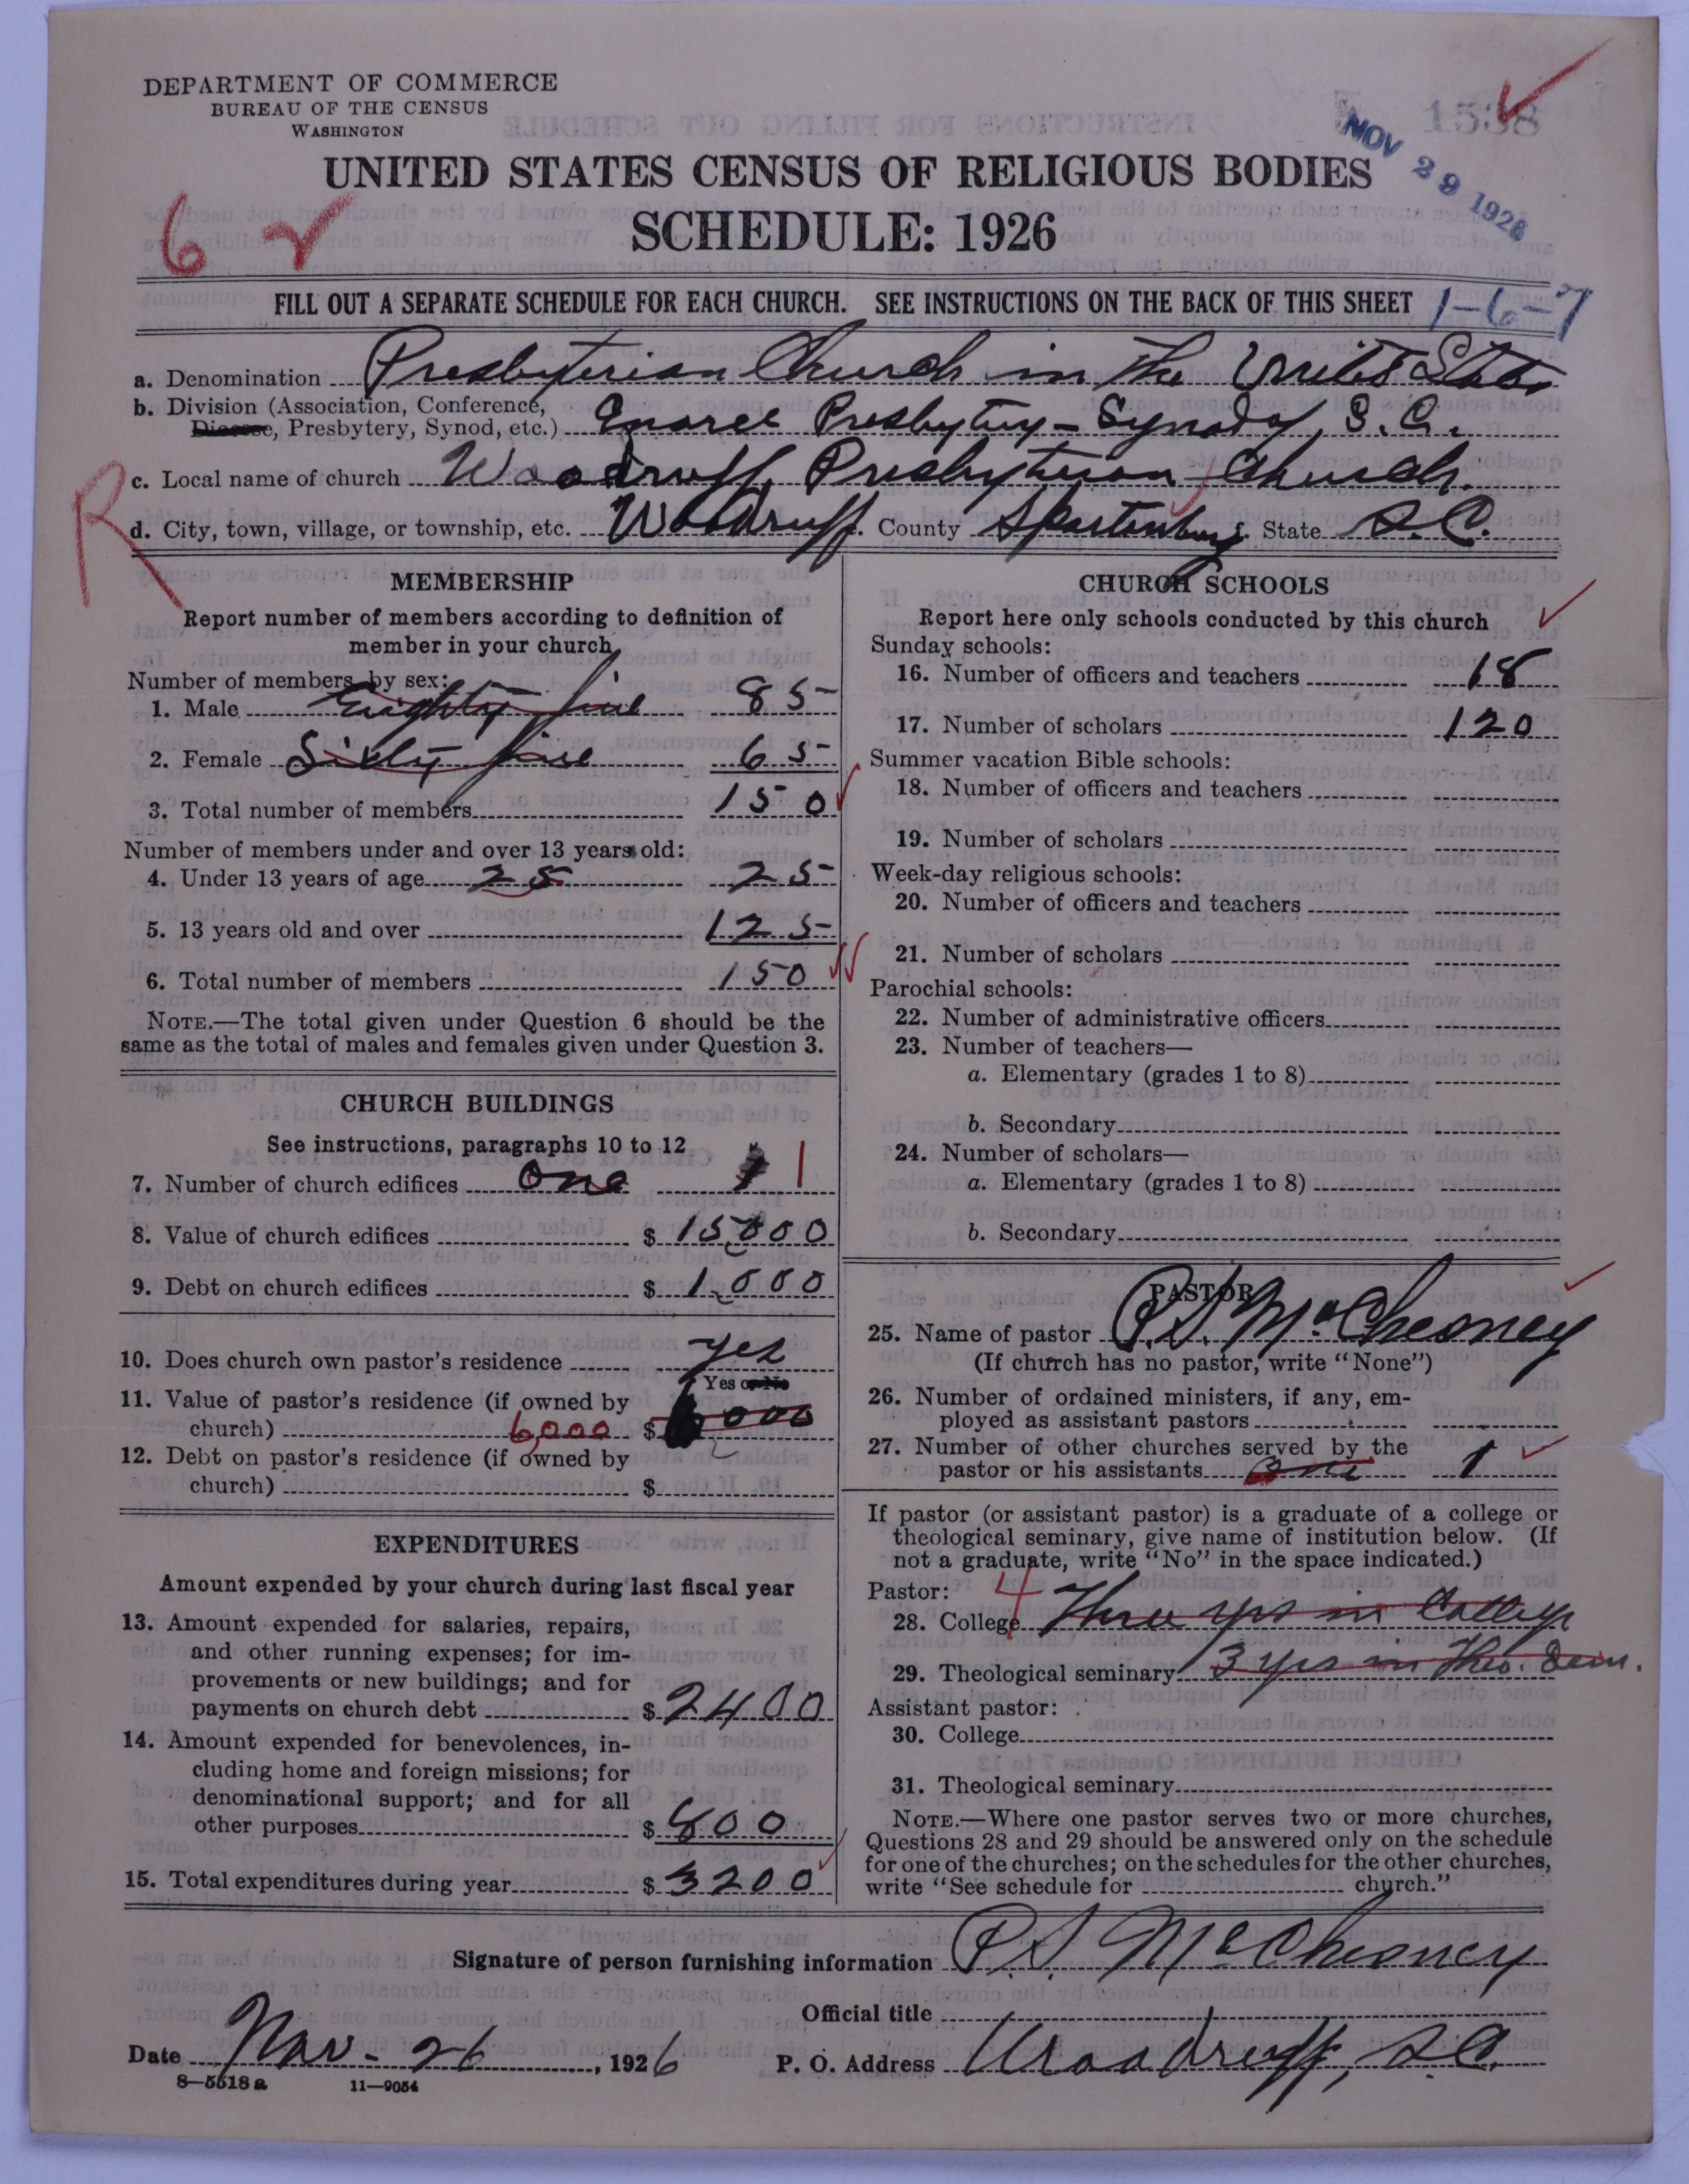 DEPARTMENT OF COMMERCE
BUREAU OF THE CENSUS
WASHINGTON
1538
NOV 29 1926
UNITED STATES CENSUS OF RELIGIOUS BODIES
SCHEDULE: 1926
6
FILL OUT A SEPARATE SCHEDULE FOR EACH CHURCH. SEE INSTRUCTIONS ON THE BACK OF THIS SHEET
1-6-7
a. Denomination Presbyterian Church in the United States
b. Division (Association, Conference,
Diocese, Presbytery, Synod, etc.) Enoree Presbytery - Synod of S.C.
c. Local name of church Woodruff Presbyterian Church.
R
d. City, town, village, or township, etc. Woodruff e. County Spartanburg f. State S.C.
MEMBERSHIP
Report number of members according to definition of
member in your church
Number of members by sex:
1. Male Eighty five 85
2. Female Sixty five 65
3. Total number of members 150
Number of members under and over 13 years old:
4. Under 13 years of age 25 25
5. 13 years old and over 125
6. Total number of members 150
NOTE.—The total given under Question 6 should be the
same as the total of males and females given under Question 3.
CHURCH BUILDINGS
See instructions, paragraphs 10 to 12
7. Number of church edifices one 1 1
8. Value of church edifices $ 15000
9. Debt on church edifices $ 1,000
10. Does church own pastor's residence yes
Yes or No
11. Value of pastor's residence (if owned by
church) 6,000 $ 6000
12. Debt on pastor's residence (if owned by
church) $
EXPENDITURES
Amount expended by your church during last fiscal year
13. Amount expended for salaries, repairs,
and other running expenses; for im-
provements or new buildings; and for
payments on church debt $ 2400
14. Amount expended for benevolences, in-
cluding home and foreign missions; for
denominational support; and for all
other purposes $ 800
15. Total expenditures during year $ 3200
CHURCH SCHOOLS
Report here only schools conducted by this church
Sunday schools:
16. Number of officers and teachers 18
17. Number of scholars 120
Summer vacation Bible schools:
18. Number of officers and teachers
19. Number of scholars
Week-day religious schools:
20. Number of officers and teachers
21. Number of scholars
Parochial schools:
22. Number of administrative officers
23. Number of teachers—
a. Elementary (grades 1 to 8)
b. Secondary
24. Number of scholars—
a. Elementary (grades 1 to 8)
b. Secondary
PASTOR
25. Name of pastor P.S. McChesney
(If church has no pastor, write "None")
26. Number of ordained ministers, if any, em-
ployed as assistant pastors
27. Number of other churches served by the
pastor or his assistants one 1
If pastor (or assistant pastor) is a graduate of a college or
theological seminary, give name of institution below. (If
not a graduate, write "No" in the space indicated.)
Pastor: 4
28. College Three yrs in College
29. Theological seminary 3 yrs in Theo. Sem.
Assistant pastor:
30. College
31. Theological seminary
NOTE.—Where one pastor serves two or more churches,
Questions 28 and 29 should be answered only on the schedule
for one of the churches; on the schedules for the other churches,
write "See schedule for church."
Signature of person furnishing information P.S. McChesney
Official title
Date Nov- 26, 1926 P. O. Address Woodruff, S.C.
8—5518a 11—9054